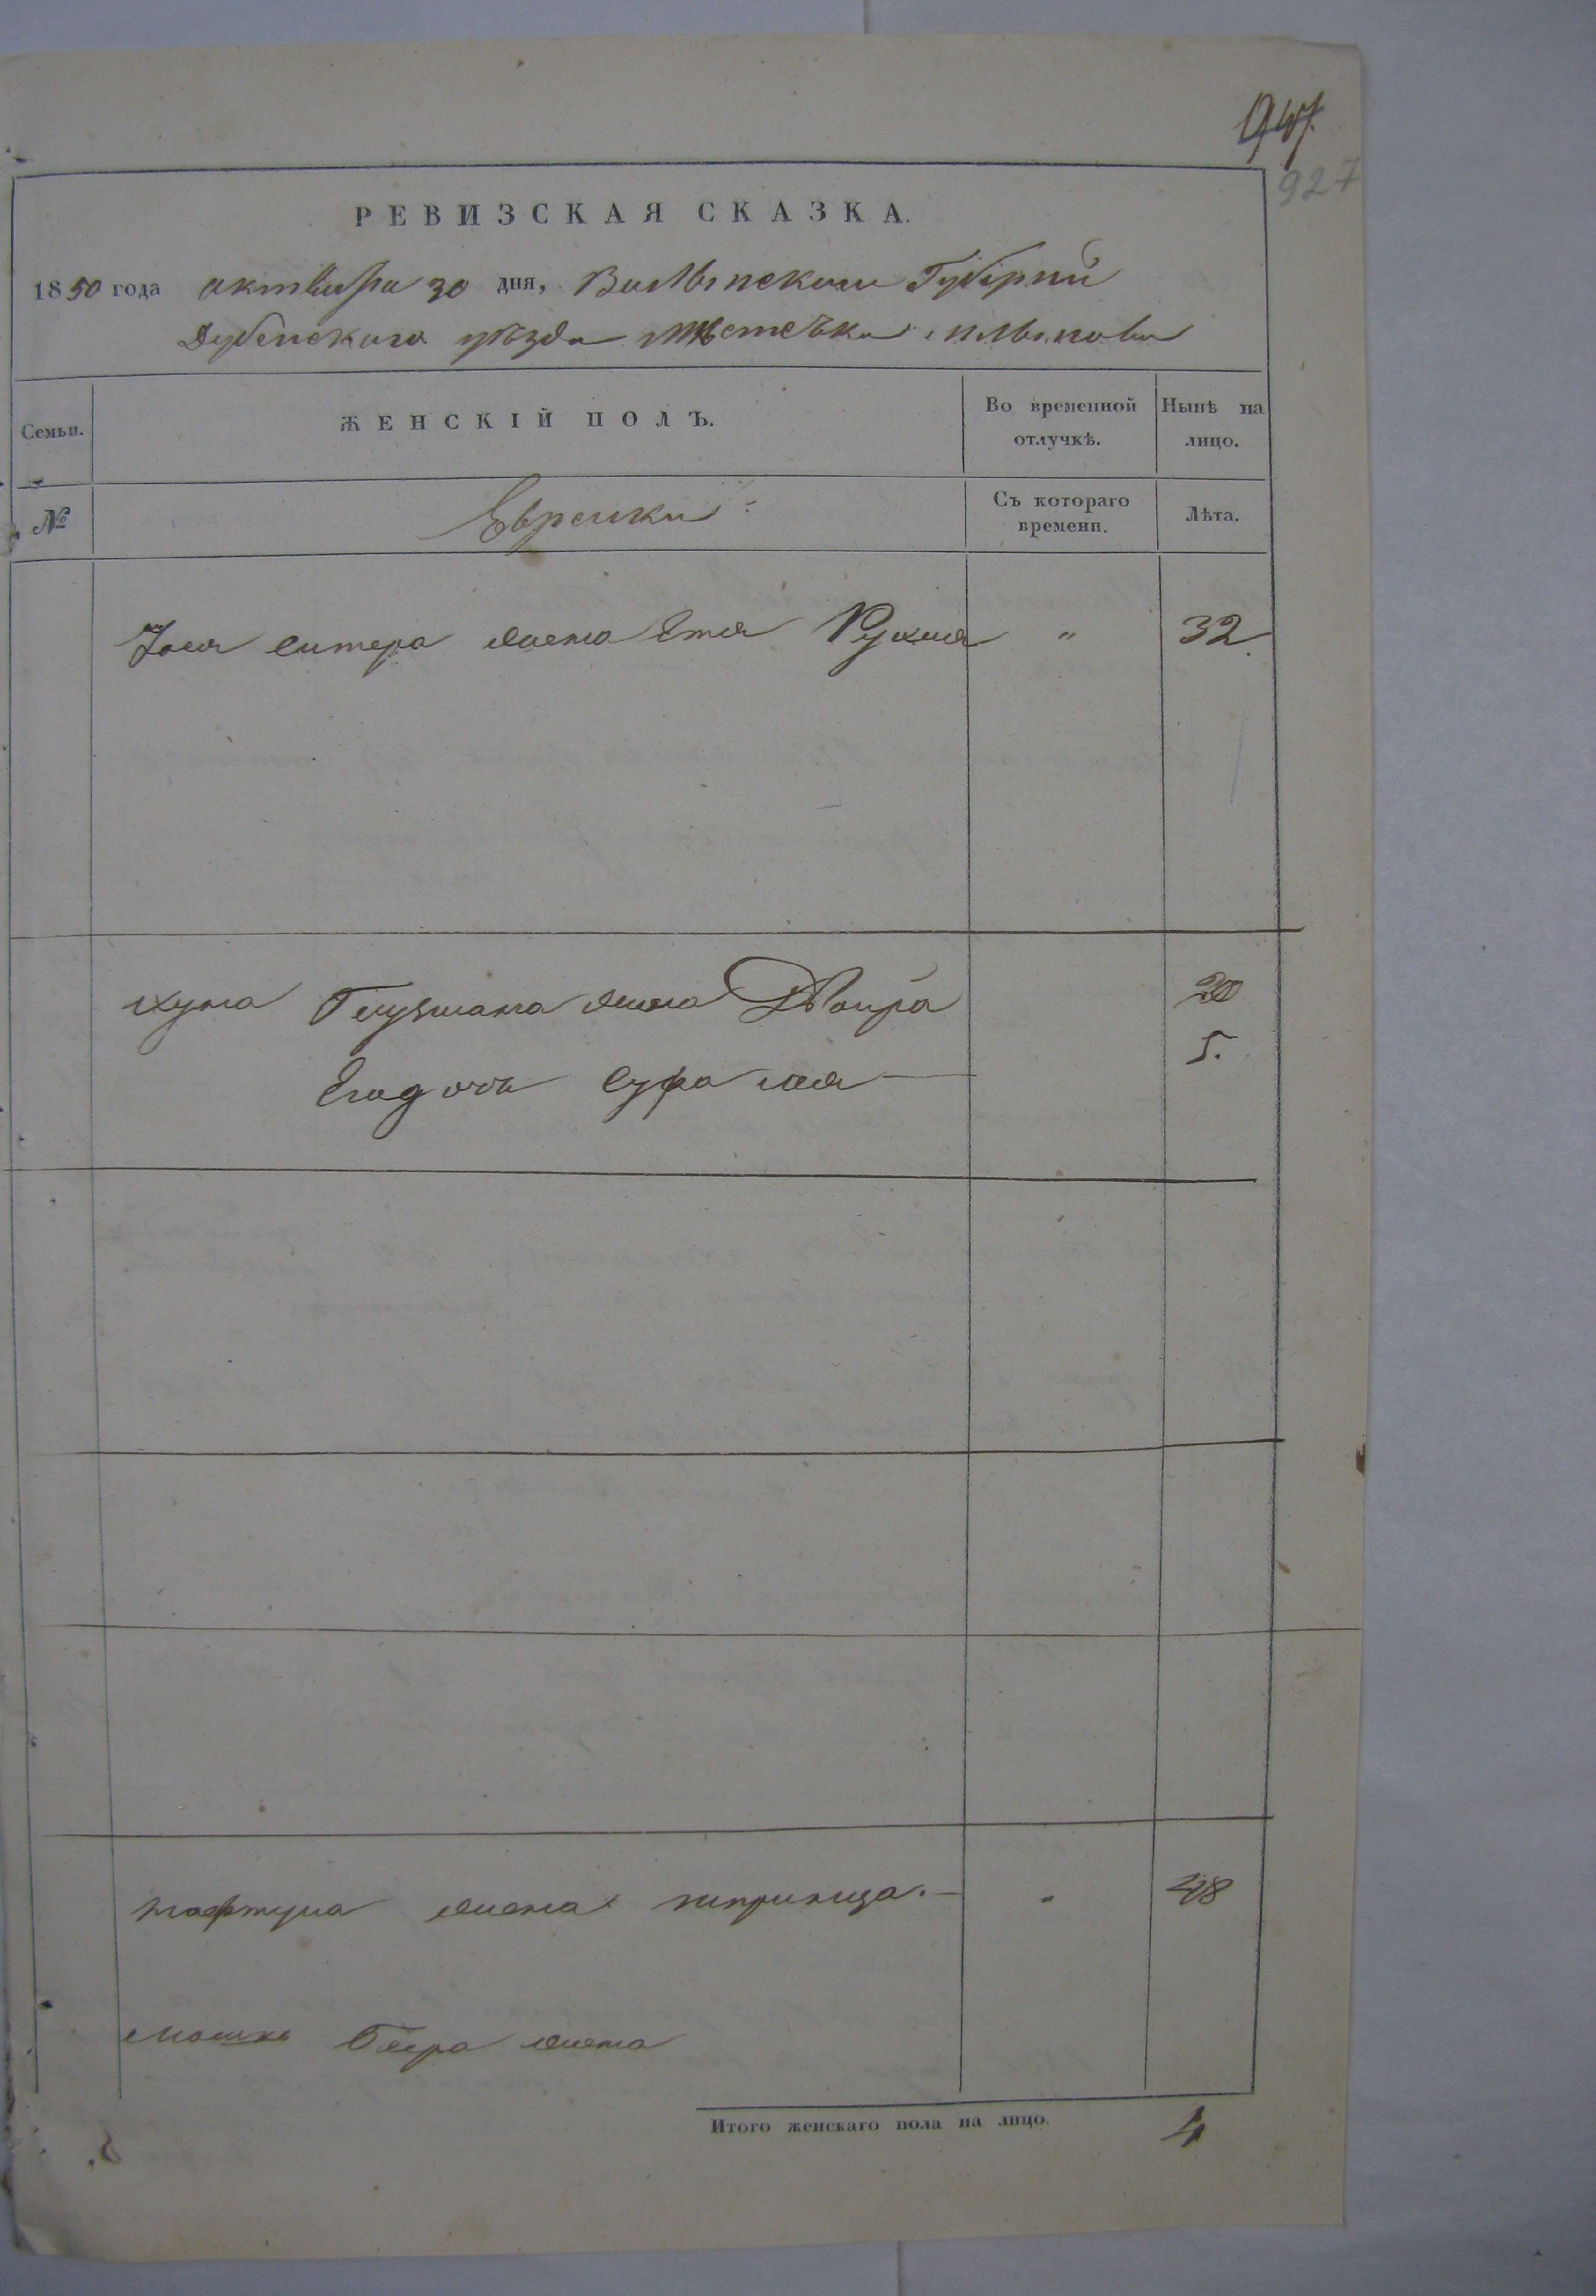 947.
927
РЕВИЗСКАЯ СКАЗКА.
1850 года октября 30 дня, Волынской Губернии
Дубенского уѣзда Мѣстечка Млынова
Семьи.
ЖЕНСКІЙ ПОЛЪ.
Во временной отлучкѣ.
Нынѣ на лицо.
№
Еврейки
Съ котораго времени.
Лѣта.
Иося Ситера жена Етя Рухля " 32
Нухима Глузмана жена Двойра 20
Его дочь Сура лея 5.
жена шпринца. " 48
Мошка Бера жена
Итого женскаго пола на лицо. 4